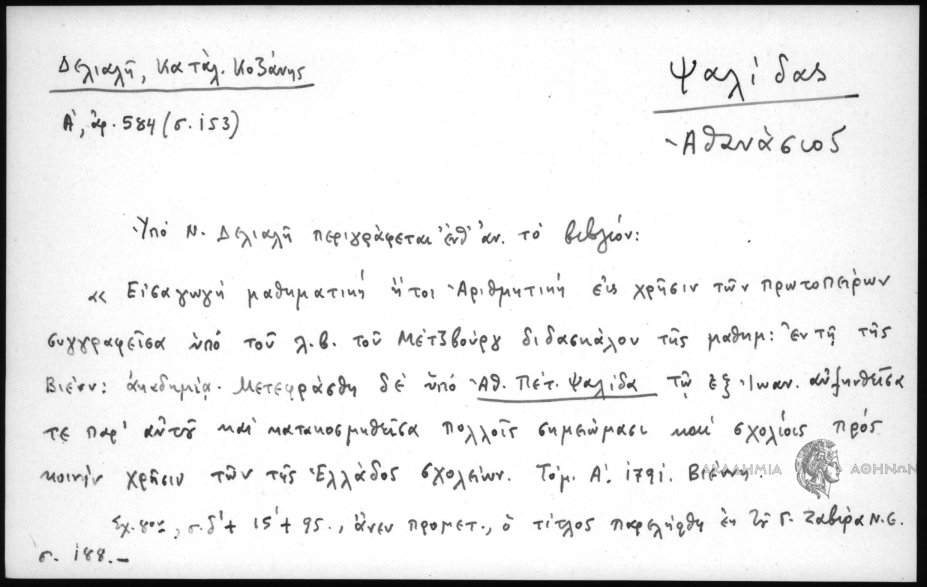 Δελιαλῆ, Κατάλ. Κοζάνης
Ψαλίδας
Α', ἀρ. 584 (σ. 153)
Ἀθανάσιος
Ὑπό Ν. Δελιαλῆ περιγράφεται ἐνθ' ἀν. τό βιβλίον:
« Εἰσαγωγή μαθηματική ἤτοι Ἀριθμητική εἰς χρῆσιν τῶν πρωτοπείρων
συγγραφεῖσα ὑπό τοῦ λ.β. τοῦ Μέτζβουργ διδασκάλου τῆς μαθημ: ἐν τῇ τῆς
Βιένν: ἀκαδημίᾳ. Μετεφράσθη δέ ὑπό Ἀθ. Πέτ. Ψαλίδα τῷ ἐξ Ἰωαν. αὐξηνθεῖσα
τε παρ' αὐτοῦ καί κατακοσμηθεῖσα πολλοῖς σημειώμασι καί σχολίοις πρός
κοινήν χρῆσιν τῶν τῆς Ἑλλάδος σχολείων. Τόμ. Α'. 1791. Βιέννη.
ΑΚΑΔΗΜΙΑ ΑΘΗΝΩΝ
Σχ. 8ον, σ. δ'+ 15'+ 95., ἄνευ προμετ., ὁ τίτλος παρελήφθη ἐκ τοῦ Γ. Ζαβίρα Ν.Ε.
σ. 188.–